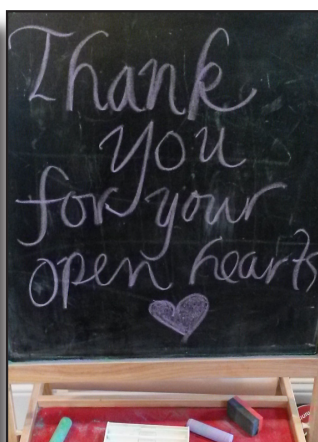 Thank
you
for your
open hearts